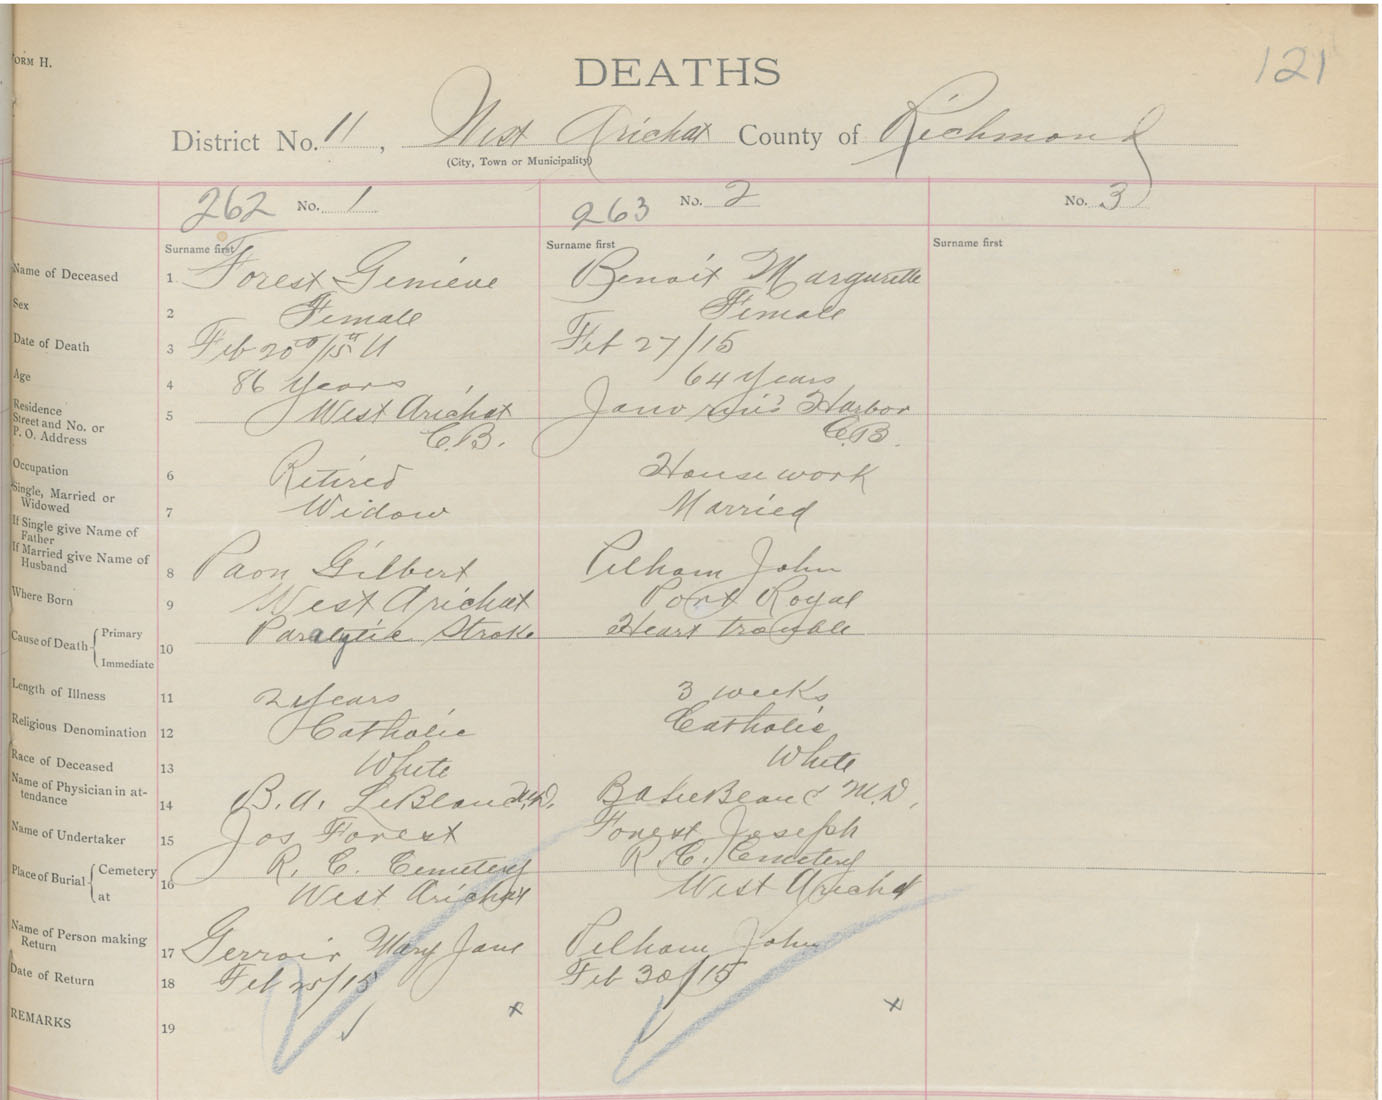 FORM H.
121
DEATHS
District No. 11, West Arichat County of Richmond
(City, Town or Municipality)
262 No. 1
263 No. 2
No. 3
Surname first
Surname first
Surname first
Name of Deceased 1 Forest Genieve Benoit Margurette
Sex 2 Female Female
Date of Death 3 Feb 20th/15th Feb 27/15
Age 4 86 years 64 years
Residence
Street and No. or
P. O. Address 5 West Arichat Harbor
C.B. C.B.
Occupation 6 Retired House work
Single, Married or
Widowed 7 Widow Married
If Single give Name of
Father
If Married give Name of
Husband 8 Paon Gilbert Pelham John
Where Born 9 West Arichat Port Royal
Cause of Death Primary Paralytic Stroke Heart trouble
Immediate 10
Length of Illness 11 2 years 3 weeks
Religious Denomination 12 Catholic Catholic
Race of Deceased 13 White White
Name of Physician in at-
tendance 14 B. A. LeBlanc M.D. B A LeBlanc M.D.
Name of Undertaker 15 Jos Forest Forest Joseph
Place of Burial Cemetery 16 R. C. Cemetery R. C. Cemetery
at West Arichat West Arichat
Name of Person making
Return 17 Gerroir Mary Jane Pelham John
Date of Return 18 Feb 25/15 Feb 30/15
REMARKS 19
x x